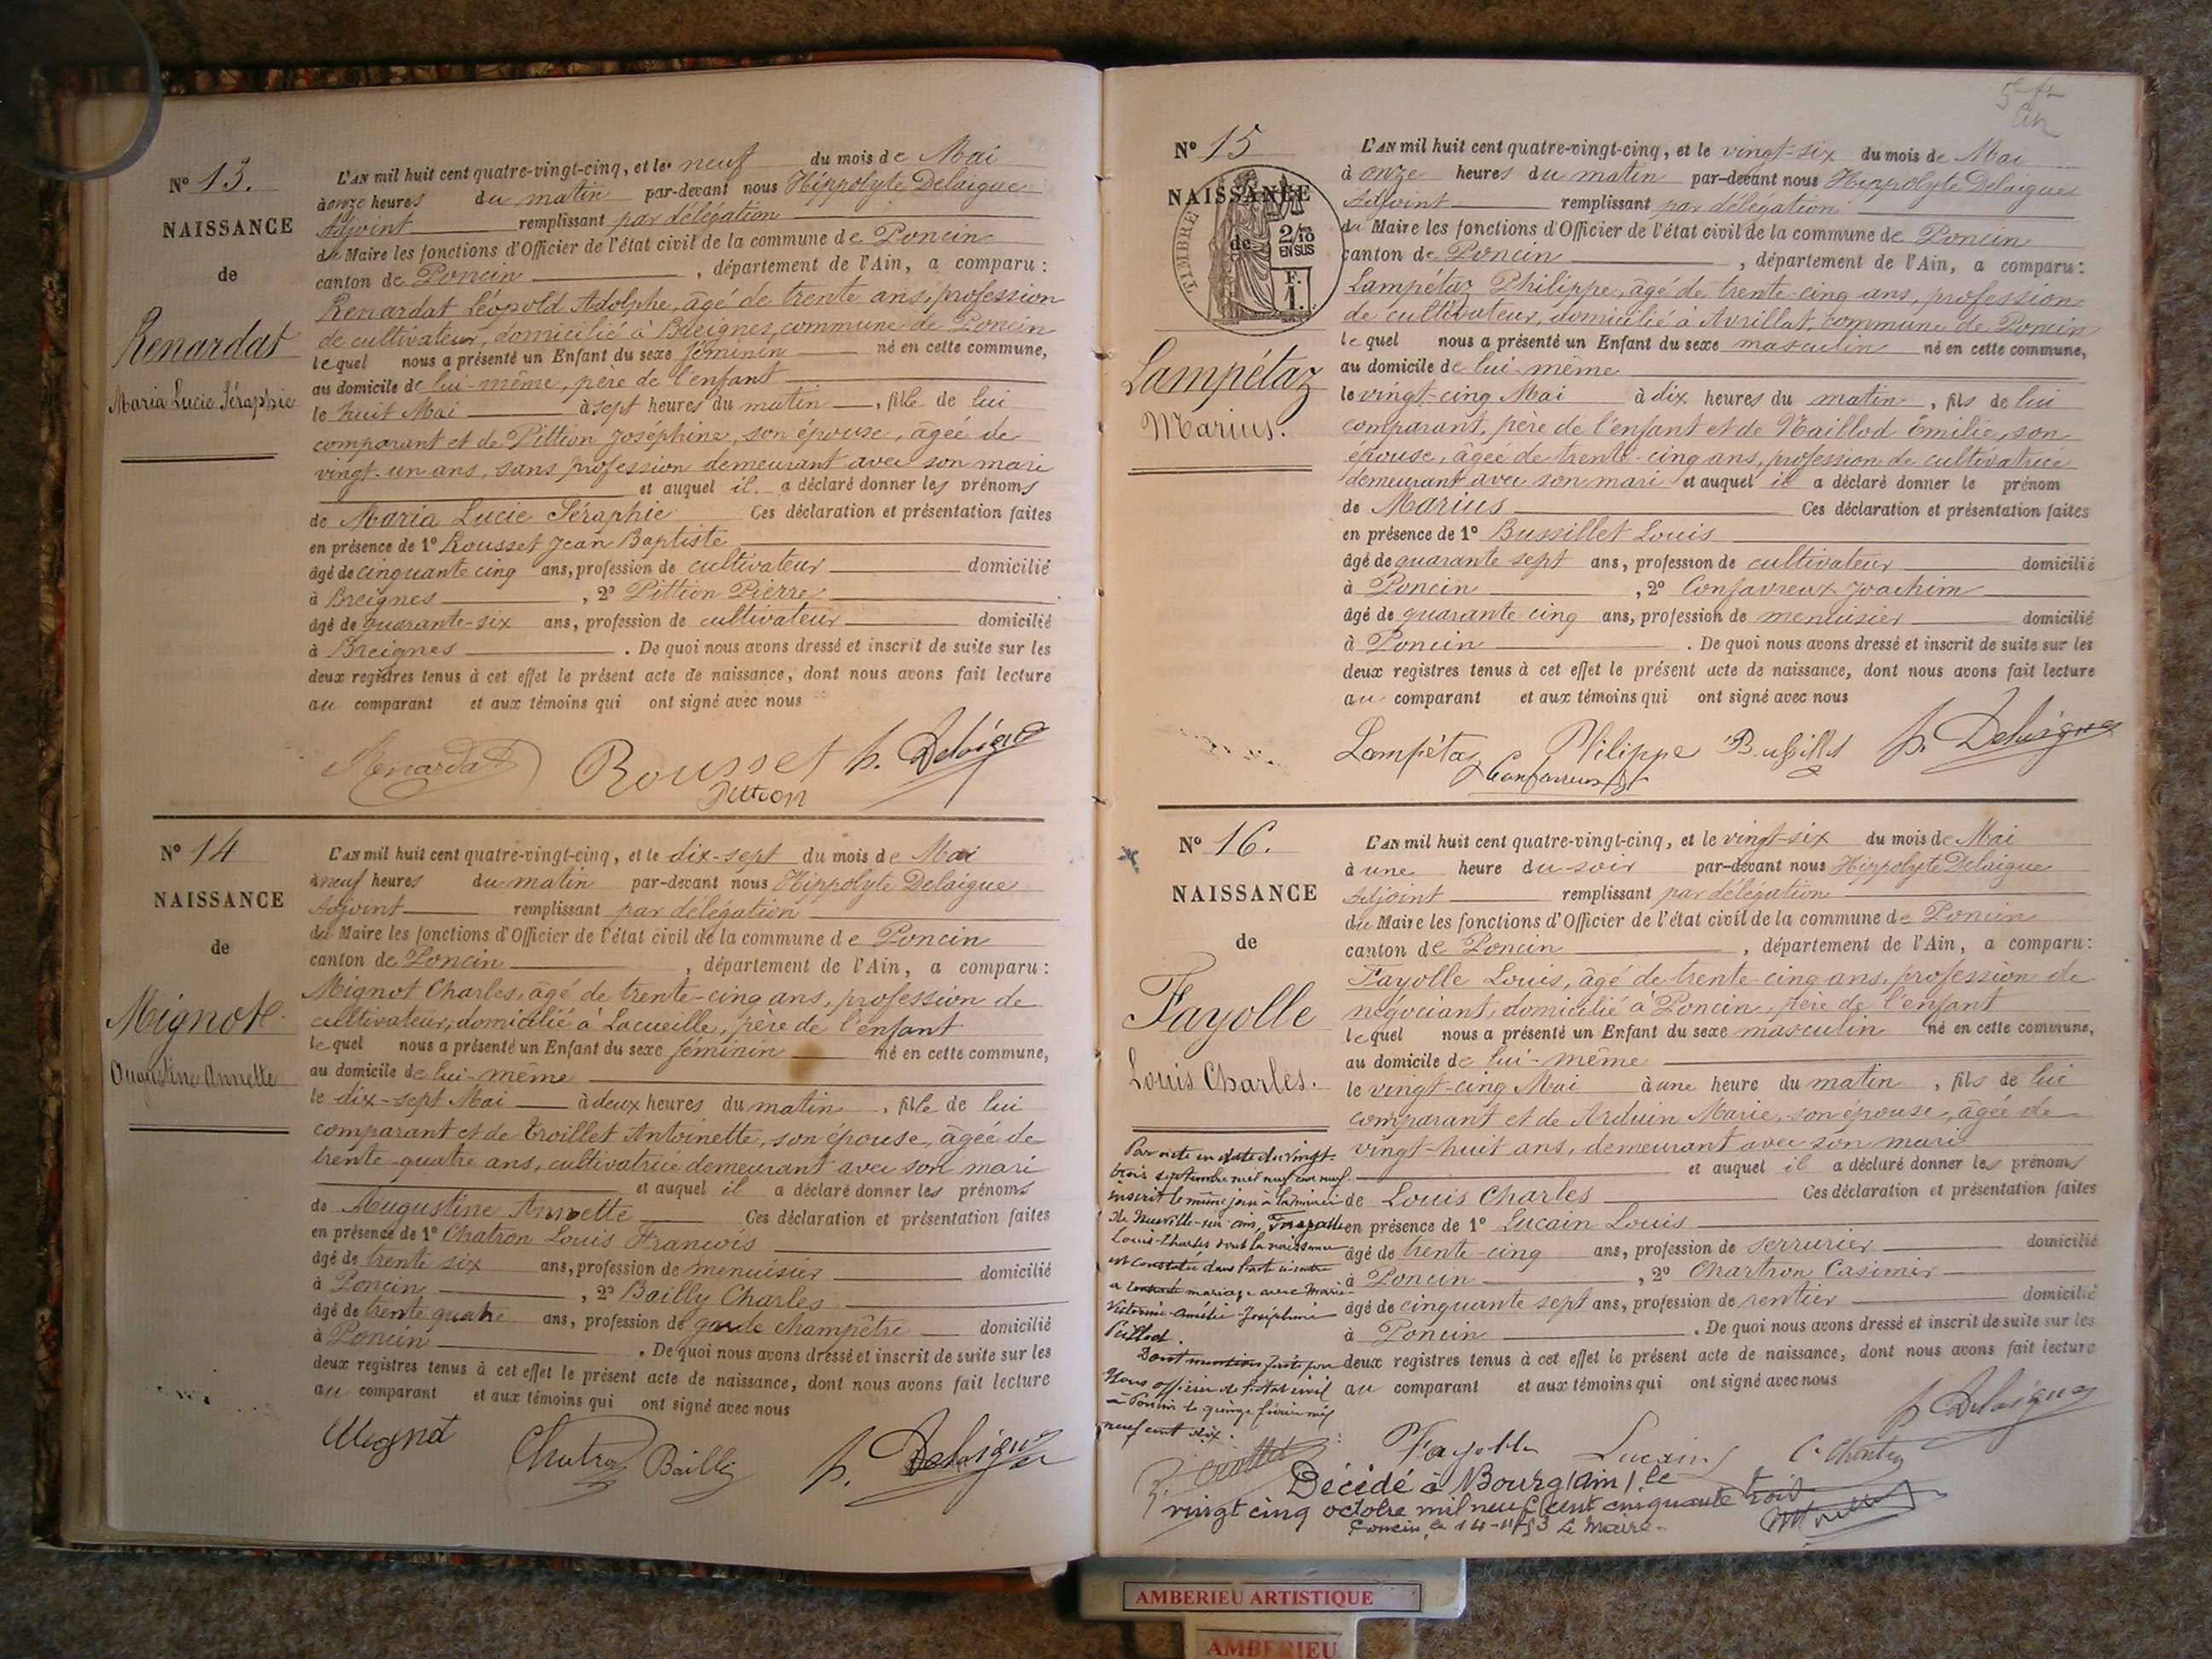 N° 13.
NAISSANCE
de
Renardat
Maria Lucie Séraphie
L'AN mil huit cent quatre-vingt-cinq, et le neuf du mois de Mai
à onze heures du matin par-devant nous Hippolyte Delaigue
Adjoint remplissant par délégation
du Maire les fonctions d'Officier de l'état civil de la commune de Poncin
canton de Poncin, département de l'Ain, a comparu :
Renardat Léopold Adolphe, âgé de trente ans, profession
de cultivateur, domicilié à Breignes, commune de Poncin
lequel nous a présenté un Enfant du sexe féminin né en cette commune,
au domicile de lui-même, père de l'enfant
le huit Mai à sept heures du matin, fille de lui
comparant et de Pittion Joséphine, son épouse, âgée de
vingt-un ans, sans profession demeurant avec son mari
et auquel il a déclaré donner les prénoms
de Maria Lucie Séraphie Ces déclaration et présentation faites
en présence de 1° Rousset Jean Baptiste
âgé de cinquante cinq ans, profession de cultivateur domicilié
à Breignes, 2° Pittion Pierre
âgé de quarante-six ans, profession de cultivateur domicilié
à Breignes. De quoi nous avons dressé et inscrit de suite sur les
deux registres tenus à cet effet le présent acte de naissance, dont nous avons fait lecture
au comparant et aux témoins qui ont signé avec nous
Renardat Rousset h. Delaigue
Pittion
N° 14
NAISSANCE
de
Mignot
Augustine Annette
L'AN mil huit cent quatre-vingt-cinq, et le dix-sept du mois de Mai
à neuf heures du matin par-devant nous Hippolyte Delaigue
Adjoint remplissant par délégation
du Maire les fonctions d'Officier de l'état civil de la commune de Poncin
canton de Poncin, département de l'Ain, a comparu :
Mignot Charles, âgé de trente-cinq ans, profession de
cultivateur, domicilié à Lacueille, père de l'enfant
lequel nous a présenté un Enfant du sexe féminin né en cette commune,
au domicile de lui-même
le dix-sept Mai à deux heures du matin, fille de lui
comparant et de Troillet Antoinette, son épouse, âgée de
trente-quatre ans, cultivatrice demeurant avec son mari
et auquel il a déclaré donner les prénoms
de Augustine Annette Ces déclaration et présentation faites
en présence de 1° Chatron Louis François
âgé de trente six ans, profession de menuisier domicilié
à Poncin, 2° Bailly Charles
âgé de trente quatre ans, profession de garde champêtre domicilié
à Poncin. De quoi nous avons dressé et inscrit de suite sur les
deux registres tenus à cet effet le présent acte de naissance, dont nous avons fait lecture
au comparant et aux témoins qui ont signé avec nous
Mignot Bailly h. Delaigue
N° 15
NAISSANCE
de
TIMBRE
2/10
EN SUS
F.
1.
Lampétaz
Marius.
L'AN mil huit cent quatre-vingt-cinq, et le vingt-six du mois de Mai
à onze heures du matin par-devant nous Hippolyte Delaigue
Adjoint remplissant par délégation
du Maire les fonctions d'Officier de l'état civil de la commune de Poncin
canton de Poncin, département de l'Ain, a comparu :
Lampétaz Philippe, âgé de trente-cinq ans, profession
de cultivateur, domicilié à Avrillat, commune de Poncin
lequel nous a présenté un Enfant du sexe masculin né en cette commune,
au domicile de lui-même
le vingt-cinq Mai à dix heures du matin, fils de lui
comparant, père de l'enfant et de Maillod Émilie, son
épouse, âgée de trente-cinq ans, profession de cultivatrice
demeurant avec son mari et auquel il a déclaré donner le prénom
de Marius Ces déclaration et présentation faites
en présence de 1° Bussillet Louis
âgé de quarante sept ans, profession de cultivateur domicilié
à Poncin, 2° Confavreux Joachim
âgé de quarante cinq ans, profession de menuisier domicilié
à Poncin. De quoi nous avons dressé et inscrit de suite sur les
deux registres tenus à cet effet le présent acte de naissance, dont nous avons fait lecture
au comparant et aux témoins qui ont signé avec nous
Lampétaz Philippe Bussillet h. Delaigue
Confavreux
N° 16.
NAISSANCE
de
Fayolle
Louis Charles.
L'AN mil huit cent quatre-vingt-cinq, et le vingt-six du mois de Mai
à une heure du soir par-devant nous Hippolyte Delaigue
Adjoint remplissant par délégation
du Maire les fonctions d'Officier de l'état civil de la commune de Poncin
canton de Poncin, département de l'Ain, a comparu :
Fayolle Louis, âgé de trente-cinq ans, profession de
négociant, domicilié à Poncin, père de l'enfant
lequel nous a présenté un Enfant du sexe masculin né en cette commune,
au domicile de lui-même
le vingt-cinq Mai à une heure du matin, fils de lui
comparant et de Arduin Marie, son épouse, âgée de
vingt-huit ans, demeurant avec son mari
et auquel il a déclaré donner les prénoms
de Louis Charles Ces déclaration et présentation faites
en présence de 1° Lucain Louis
âgé de trente-cinq ans, profession de serrurier domicilié
à Poncin, 2° Chartron Casimir
âgé de cinquante sept ans, profession de rentier domicilié
à Poncin. De quoi nous avons dressé et inscrit de suite sur les
deux registres tenus à cet effet le présent acte de naissance, dont nous avons fait lecture
au comparant et aux témoins qui ont signé avec nous
h. Delaigue
Fayolle Lucain
Par acte en date du vingt-
trois septembre mil neuf cent neuf
inscrit le même jour à la mairie
de Neuville-sur-ain, Fayolle
Louis-Charles dont la naissance
est constatée dans l'acte ci-contre
a contracté mariage avec Marie-
Victorine-Amélie-Joséphine
Peillod.
Dont mention faite par
Nous officier de l'état civil
à Poncin le quinze février mil
neuf cent dix.
Décédé à Bourg (Ain) le
vingt cinq octobre mil neuf cent cinquante trois
Poncin, le 14-11-53 Le Maire.
AMBERIEU ARTISTIQUE
AMBERIEU